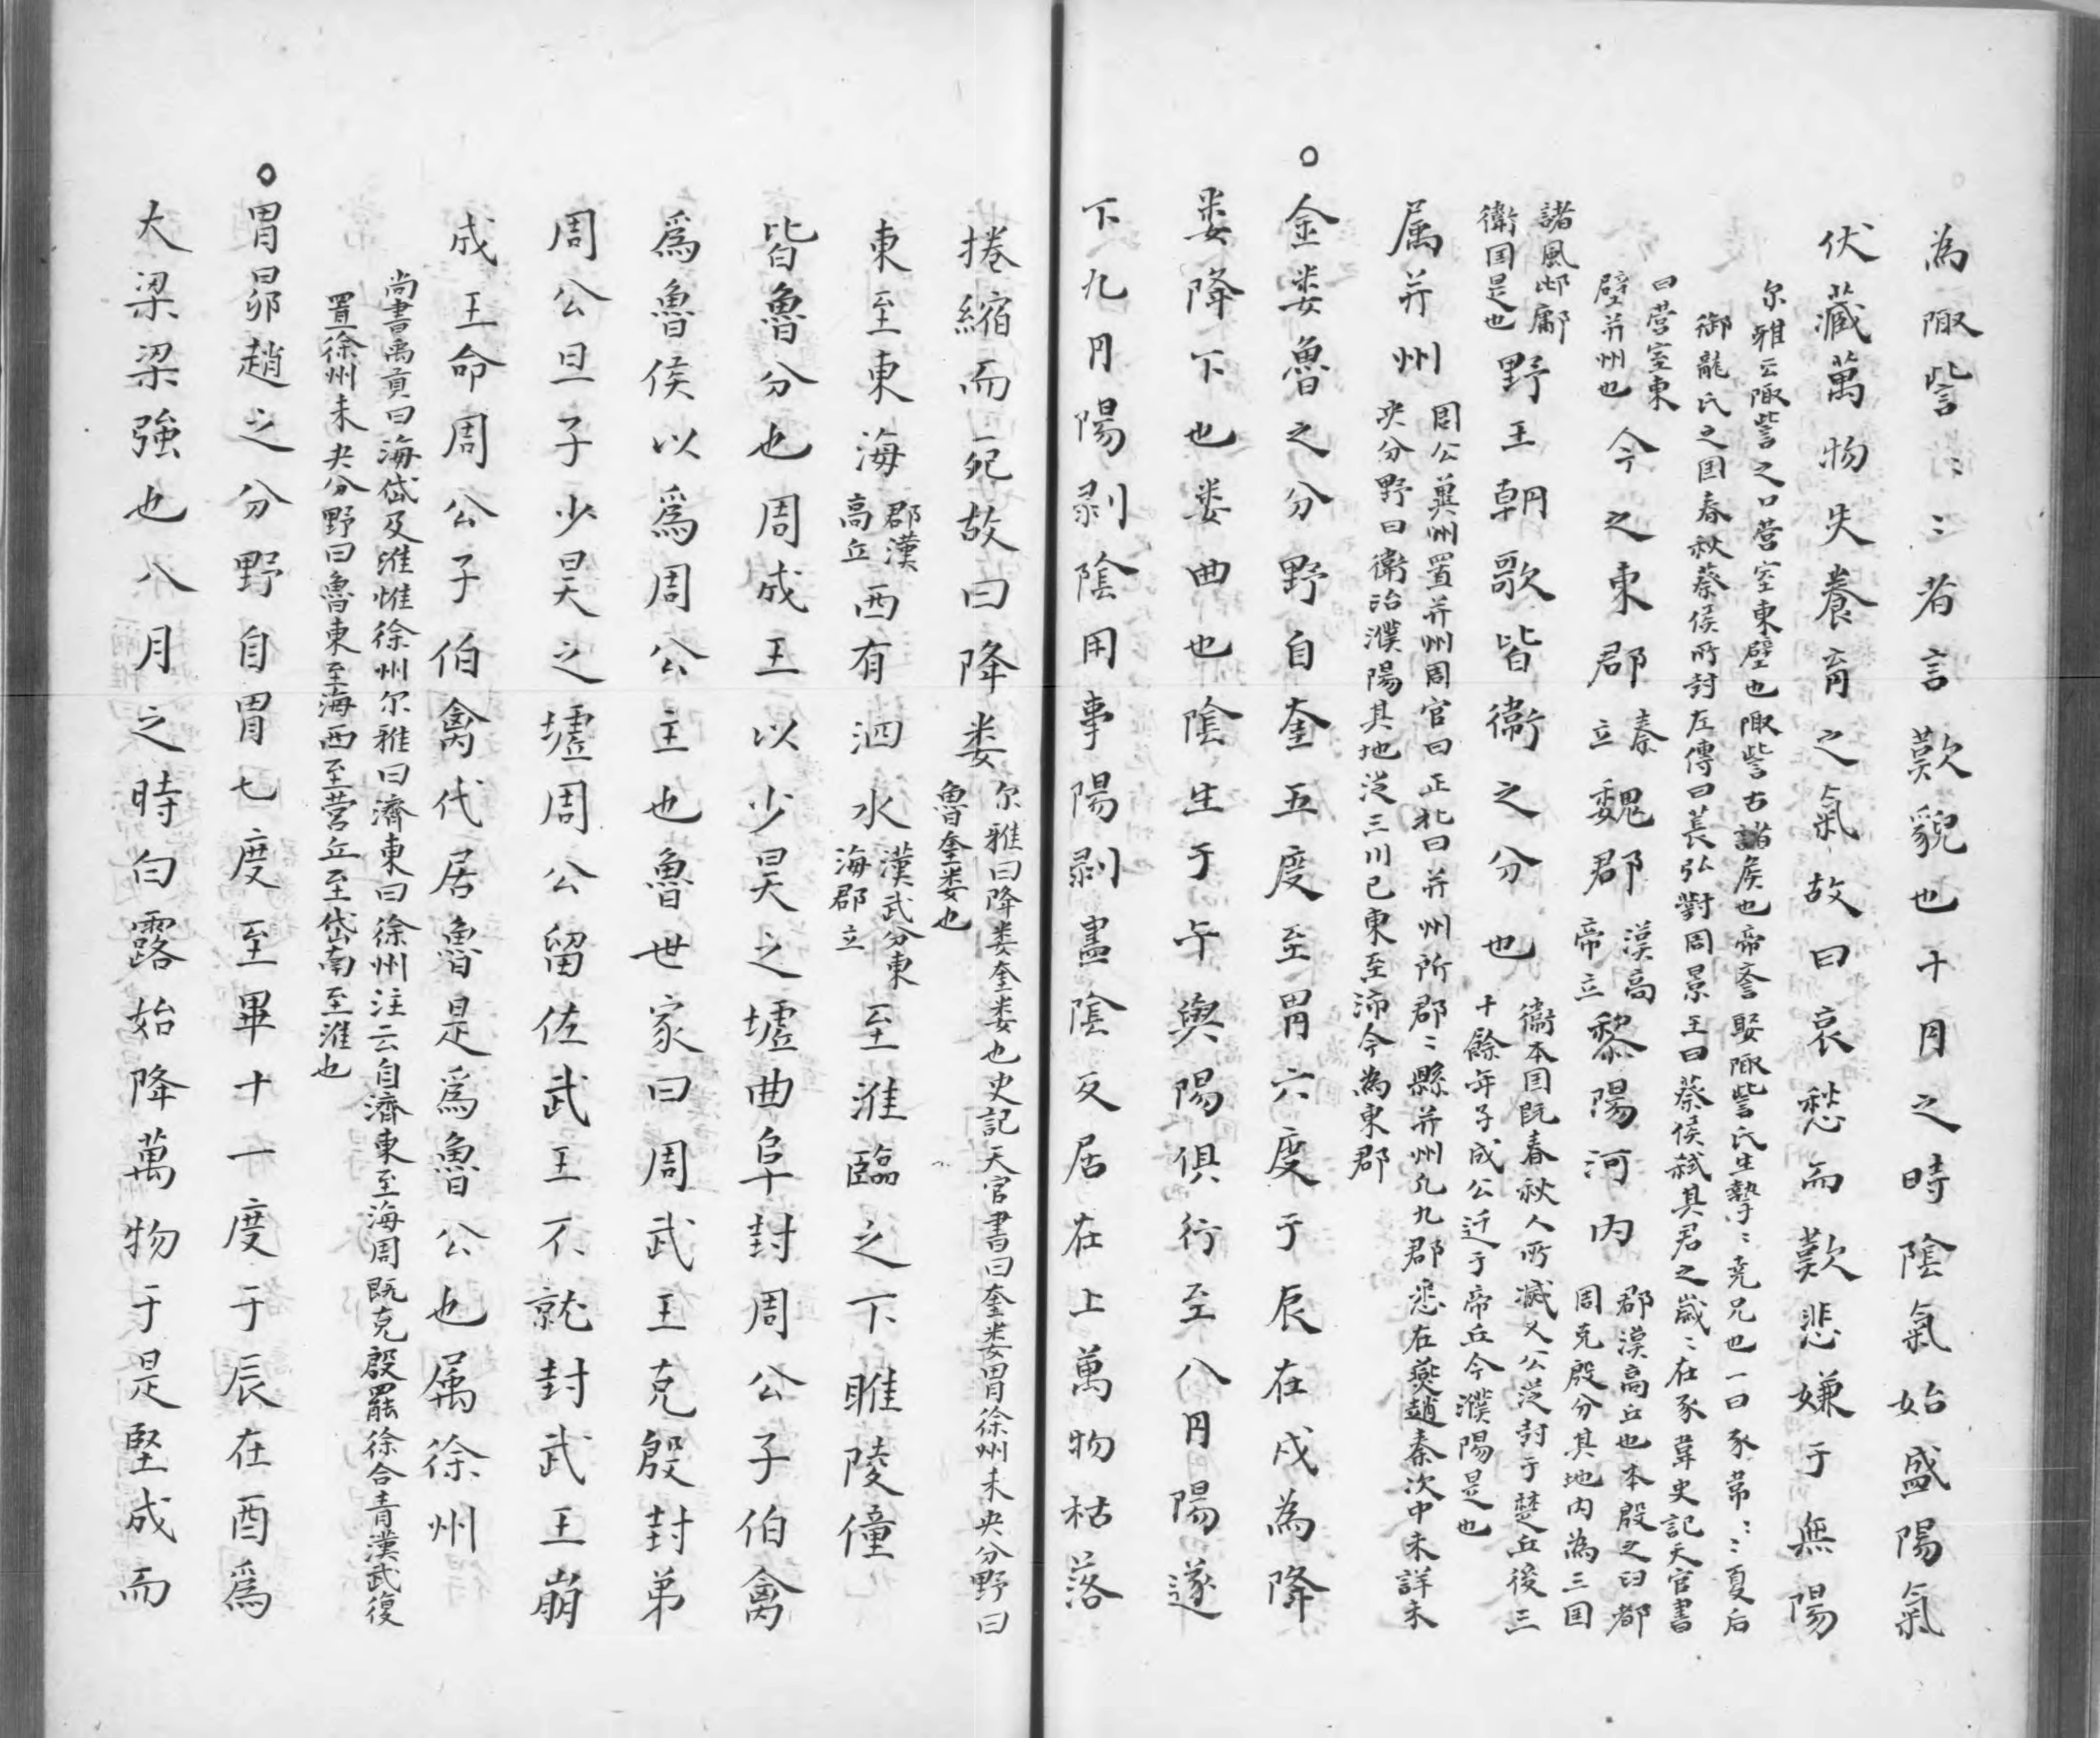 為陬訾〻〻者言歎貌也十月之時陰氣始盛陽氣
伏藏萬物失養育之氣故曰哀愁而歎悲嫌于無陽
尓雅云陬訾之口营室東壁也陬訾古諸侯也帝嚳娶陬訾氏生摯〻尭兄也一曰豕韋〻〻夏后
御龍氏之国春秋蔡侯所封左傳曰萇弘對周景王曰蔡侯弑其君之歲〻在豕韋史記天官書
曰营室東
壁并州也
今之東郡
秦
立
魏郡
漢高
帝立
黎陽河内
郡漢高丘也本殷之旧都
周克殷分其地内為三国
諸風邶鄘
衛国是也
野王朝歌皆衛之分也
衛本国既春秋人所滅文公迁封于楚丘後三
十餘年子成公迁于帝丘今濮陽是也
属并州
周公兾州置并州周官曰正北曰并州所郡〻縣并州九九郡悉在燕趙秦次中未詳未
央分野曰衛治濮陽其地迄三川已東至沛今為東郡
○金娄魯之分野自奎五度至胃六度于辰在戌為降
娄降下也娄曲也陰生于午與陽俱行至八月陽遂
下九月陽剥陰用事陽剥盡陰反居在上萬物枯落
捲縮而死故曰降娄
尓雅曰降娄奎娄也史記天官書曰奎娄胃徐州未央分野曰
魯奎娄也
東至東海
郡漢
高丘
西有泗水
漢武分東
海郡立
至淮臨之下睢陵僮
皆魯分也周成王以少昊之墟曲阜封周公子伯禽
爲魯侯以爲周公主也魯世家曰周武王克殷封弟
周公旦子少昊之墟周公留佐武王不就封武王崩
成王命周公子伯禽代居魯是爲魯公也属徐州
尚書禹貢曰海岱及淮惟徐州尓雅曰濟東曰徐州注云自濟東至海周既克殷罷徐合青漢武復
置徐州未央分野曰魯東至海西至营丘至岱南至淮也
○胃昴趙之分野自胃七度至畢十一度于辰在酉爲
大梁梁強也八月之時白露始降萬物于是堅成而